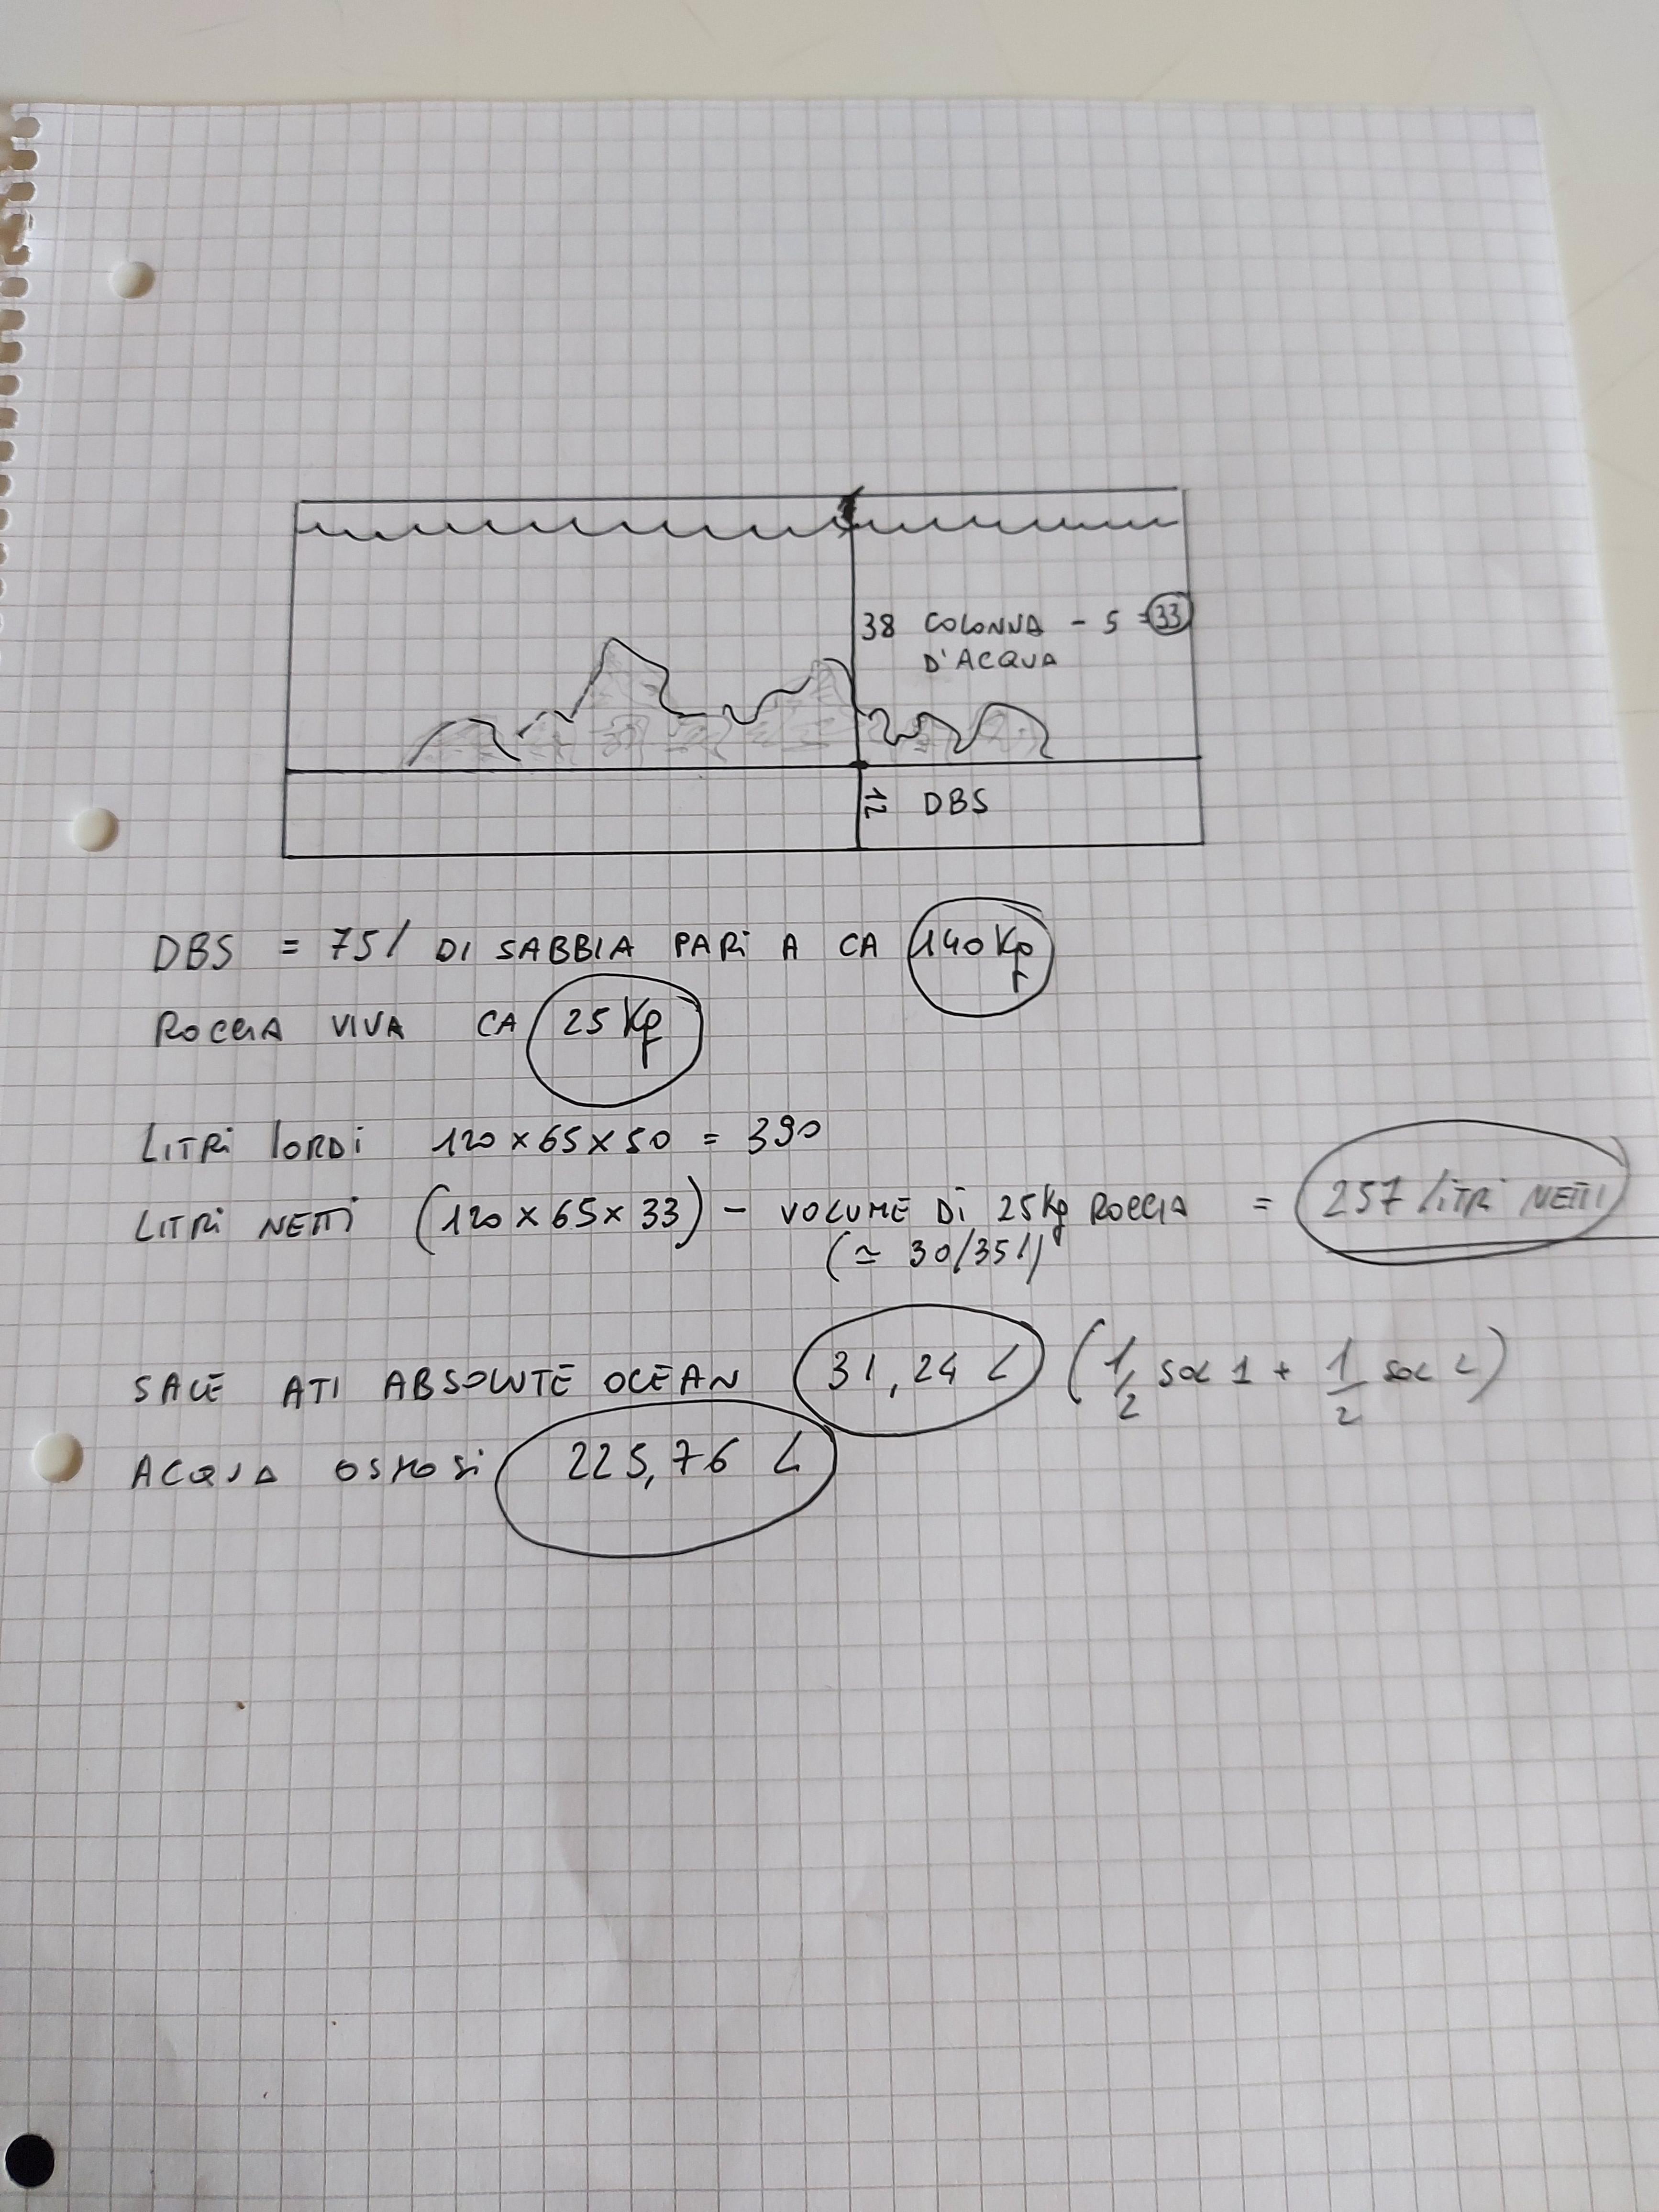 38 COLONNA - 5 = 33
D'ACQUA
12 DBS
DBS = 75l DI SABBIA PARI A CA 140 Kg
ROCCIA VIVA CA 25 Kg
LITRI lORDI 120 x 65 x 50 = 390
LITRI NETTI (120 x 65 x 33) - VOLUME DI 25 Kg ROCCIA = 257 LITRI NETTI
(≃ 30/35 l)
SALE ATI ABSOLUTE OCEAN 31,24 L (1/2 sol 1 + 1/2 sol 2)
ACQUA OSMOSI 225,76 L